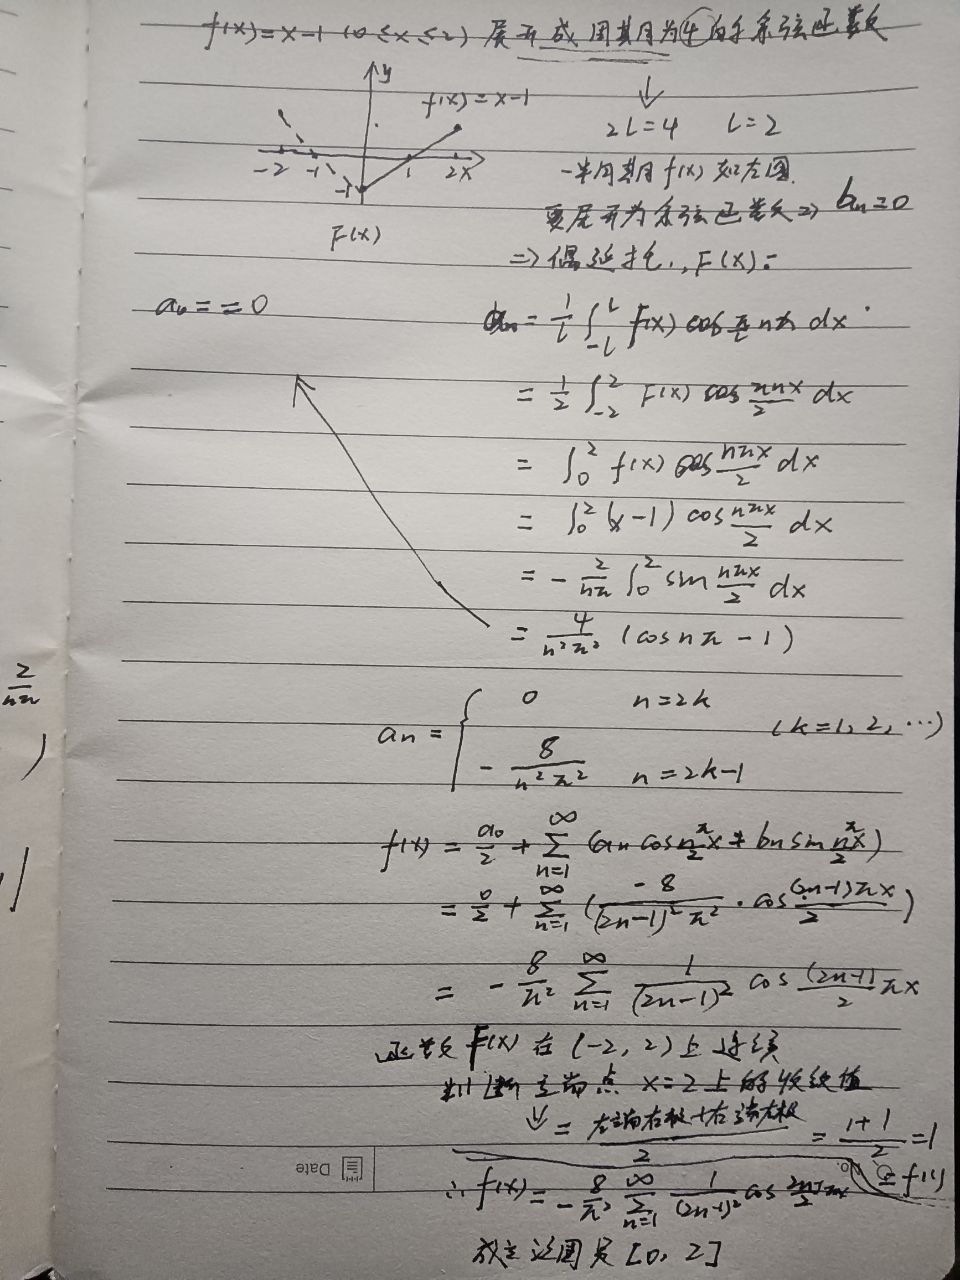 f(x)=x-1 (0≤x≤2) 展开成周期为4的余弦函数
y
f(x)=x-1
-2 -1 1 2x
-1
F(x)
↓
2l=4 l=2
一半周期f(x)如左图
要展开为余弦函数⇒ bn=0
⇒偶延拓, F(x):
a₀= =0
an = 1/l ∫_{-l}^{l} F(x) cos π/l nx dx
= 1/2 ∫_{-2}^{2} F(x) cos nπx/2 dx
= ∫_0^2 f(x) cos nπx/2 dx
= ∫_0^2 (x-1) cos nπx/2 dx
= - 2/nπ ∫_0^2 sin nπx/2 dx
= 4/n²π² (cos nπ - 1)
2/nπ
)
an = { 0 n=2k
- 8/n²π² n=2k-1 (k=1, 2, ...)
f(x) = a₀/2 + ∑_{n=1}^{∞} (an cos nπ/2 x + bn sin nπ/2 x)
= 0/2 + ∑_{n=1}^{∞} (-8/(2n-1)²π² · cos (2n-1)πx/2)
= - 8/π² ∑_{n=1}^{∞} 1/(2n-1)² cos (2n-1)/2 πx
函数F(x)在(-2, 2)上连续
判断在端点 x=2 上的收敛值
⇓ = 左端右极+右端左极/2 = 1+1/2 =1
= f(2)
∴ f(x) = - 8/π² ∑_{n=1}^{∞} 1/(2n-1)² cos 2n-1/2 πx
Date
No.
故在范围是[0, 2]